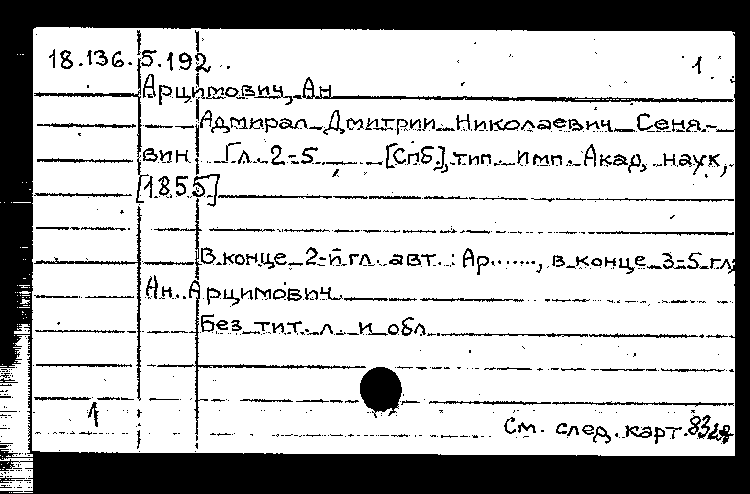 18.136.5.192
1
Арцимович, Ан
Адмирал Дмитрий Николаевич Сеня-
вин Гл. 2-5 [Спб], тип. имп. Акад, наук,
[1855]
В конце 2-й гл. авт.: Ар......., в конце 3-5 гл,
Ан. Арцимович
Без тит. л. и обл
1
См. след. карт.